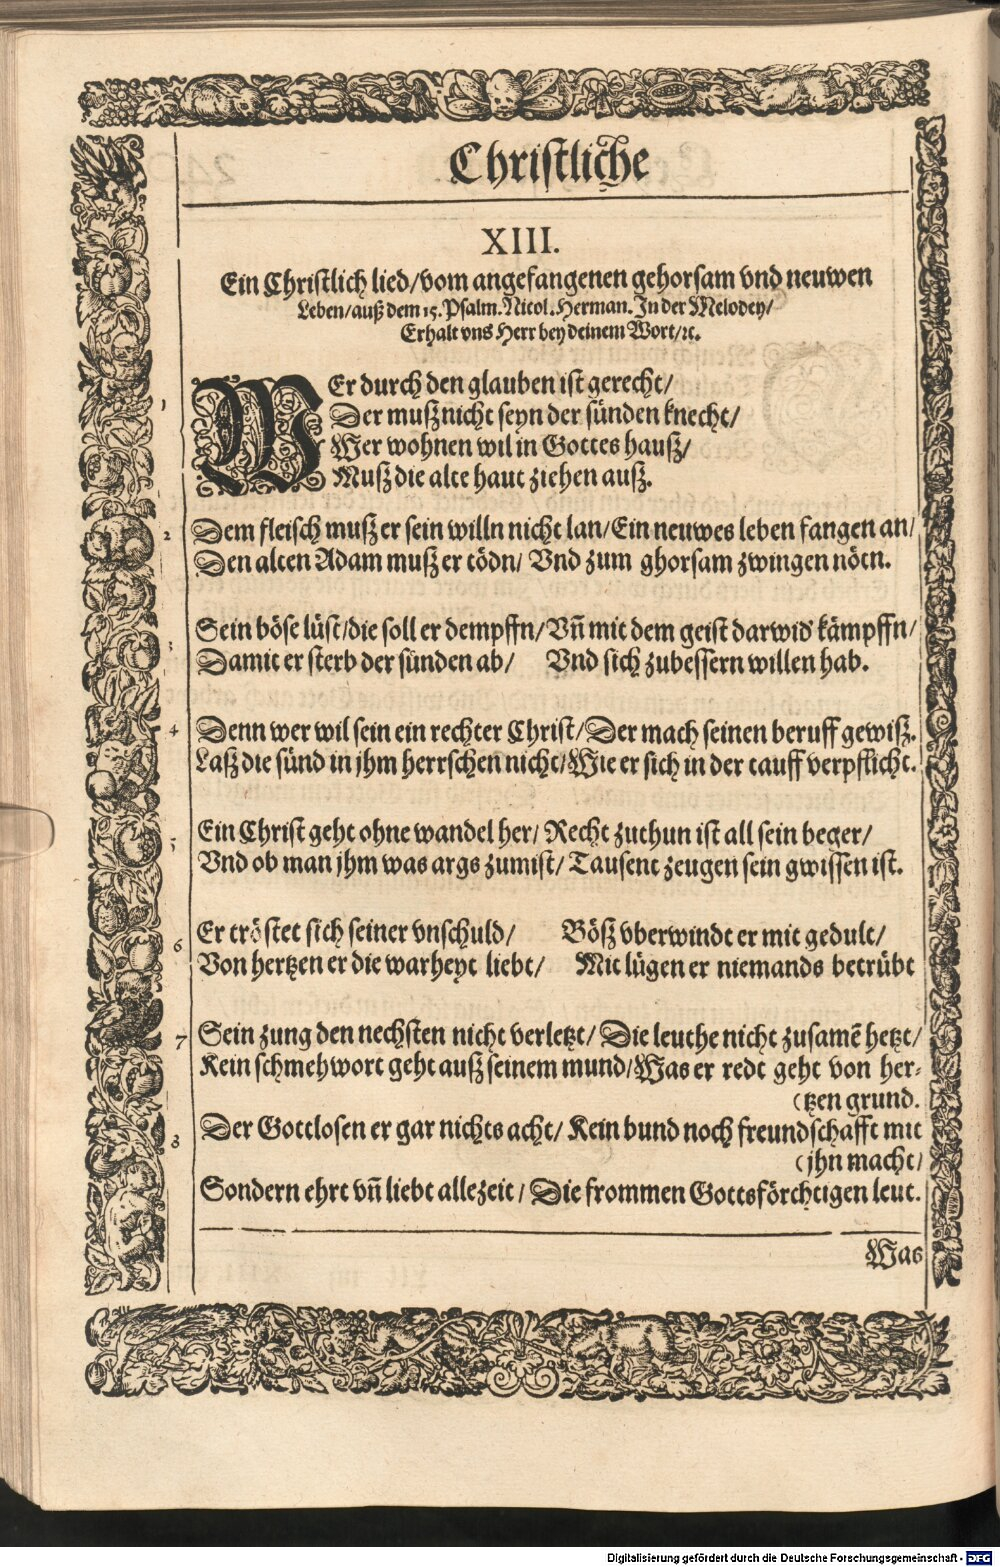 Christliche
XIII.
Ein Christlich lied/vom angefangenen gehorsam vnd neuwen
Leben/auß dem 15. Psalm. Nicol. Herman. In der Melodey/
Erhalt vns Herr bey deinem Wort/ꝛc.
1 WEr durch den glauben ist gerecht/
Der muß nicht seyn der sünden knecht/
Wer wohnen wil in Gottes hauß/
Muß die alte haut ziehen auß.
2 Dem fleisch muß er sein willn nicht lan/Ein neuwes leben fangen an/
Den alten Adam muß er tödn/ Vnd zum ghorsam zwingen nötn.
3 Sein böse lüst/die soll er dempffn/Vñ mit dem geist darwid' kämpffn/
Damit er sterb der sünden ab/ Vnd sich zubessern willen hab.
4 Denn wer wil sein ein rechter Christ/Der mach seinen beruff gewiß.
Laß die sünd in jhm herrschen nicht/Wie er sich in der tauff verpflicht.
5 Ein Christ geht ohne wandel her/ Recht zuthun ist all sein beger/
Vnd ob man jhm was args zumist/ Tausent zeugen sein gwissen ist.
6 Er tröstet sich seiner vnschuld/ Böß vberwindt er mit gedult/
Von hertzen er die warheyt liebt/ Mit lügen er niemands betrübt
7 Sein zung den nechsten nicht verletzt/ Die leuthe nicht zusamẽ hetzt/
Kein schmehwort geht auß seinem mund/Was er redt geht von her-
(tzen grund.
8 Der Gottlosen er gar nichts acht/ Kein bund noch freundschafft mit
(jhn macht/
Sondern ehrt vñ liebt allezeit/ Die frommen Gottsförchtigen leut.
Was
Digitalisierung gefördert durch die Deutsche Forschungsgemeinschaft - DFG